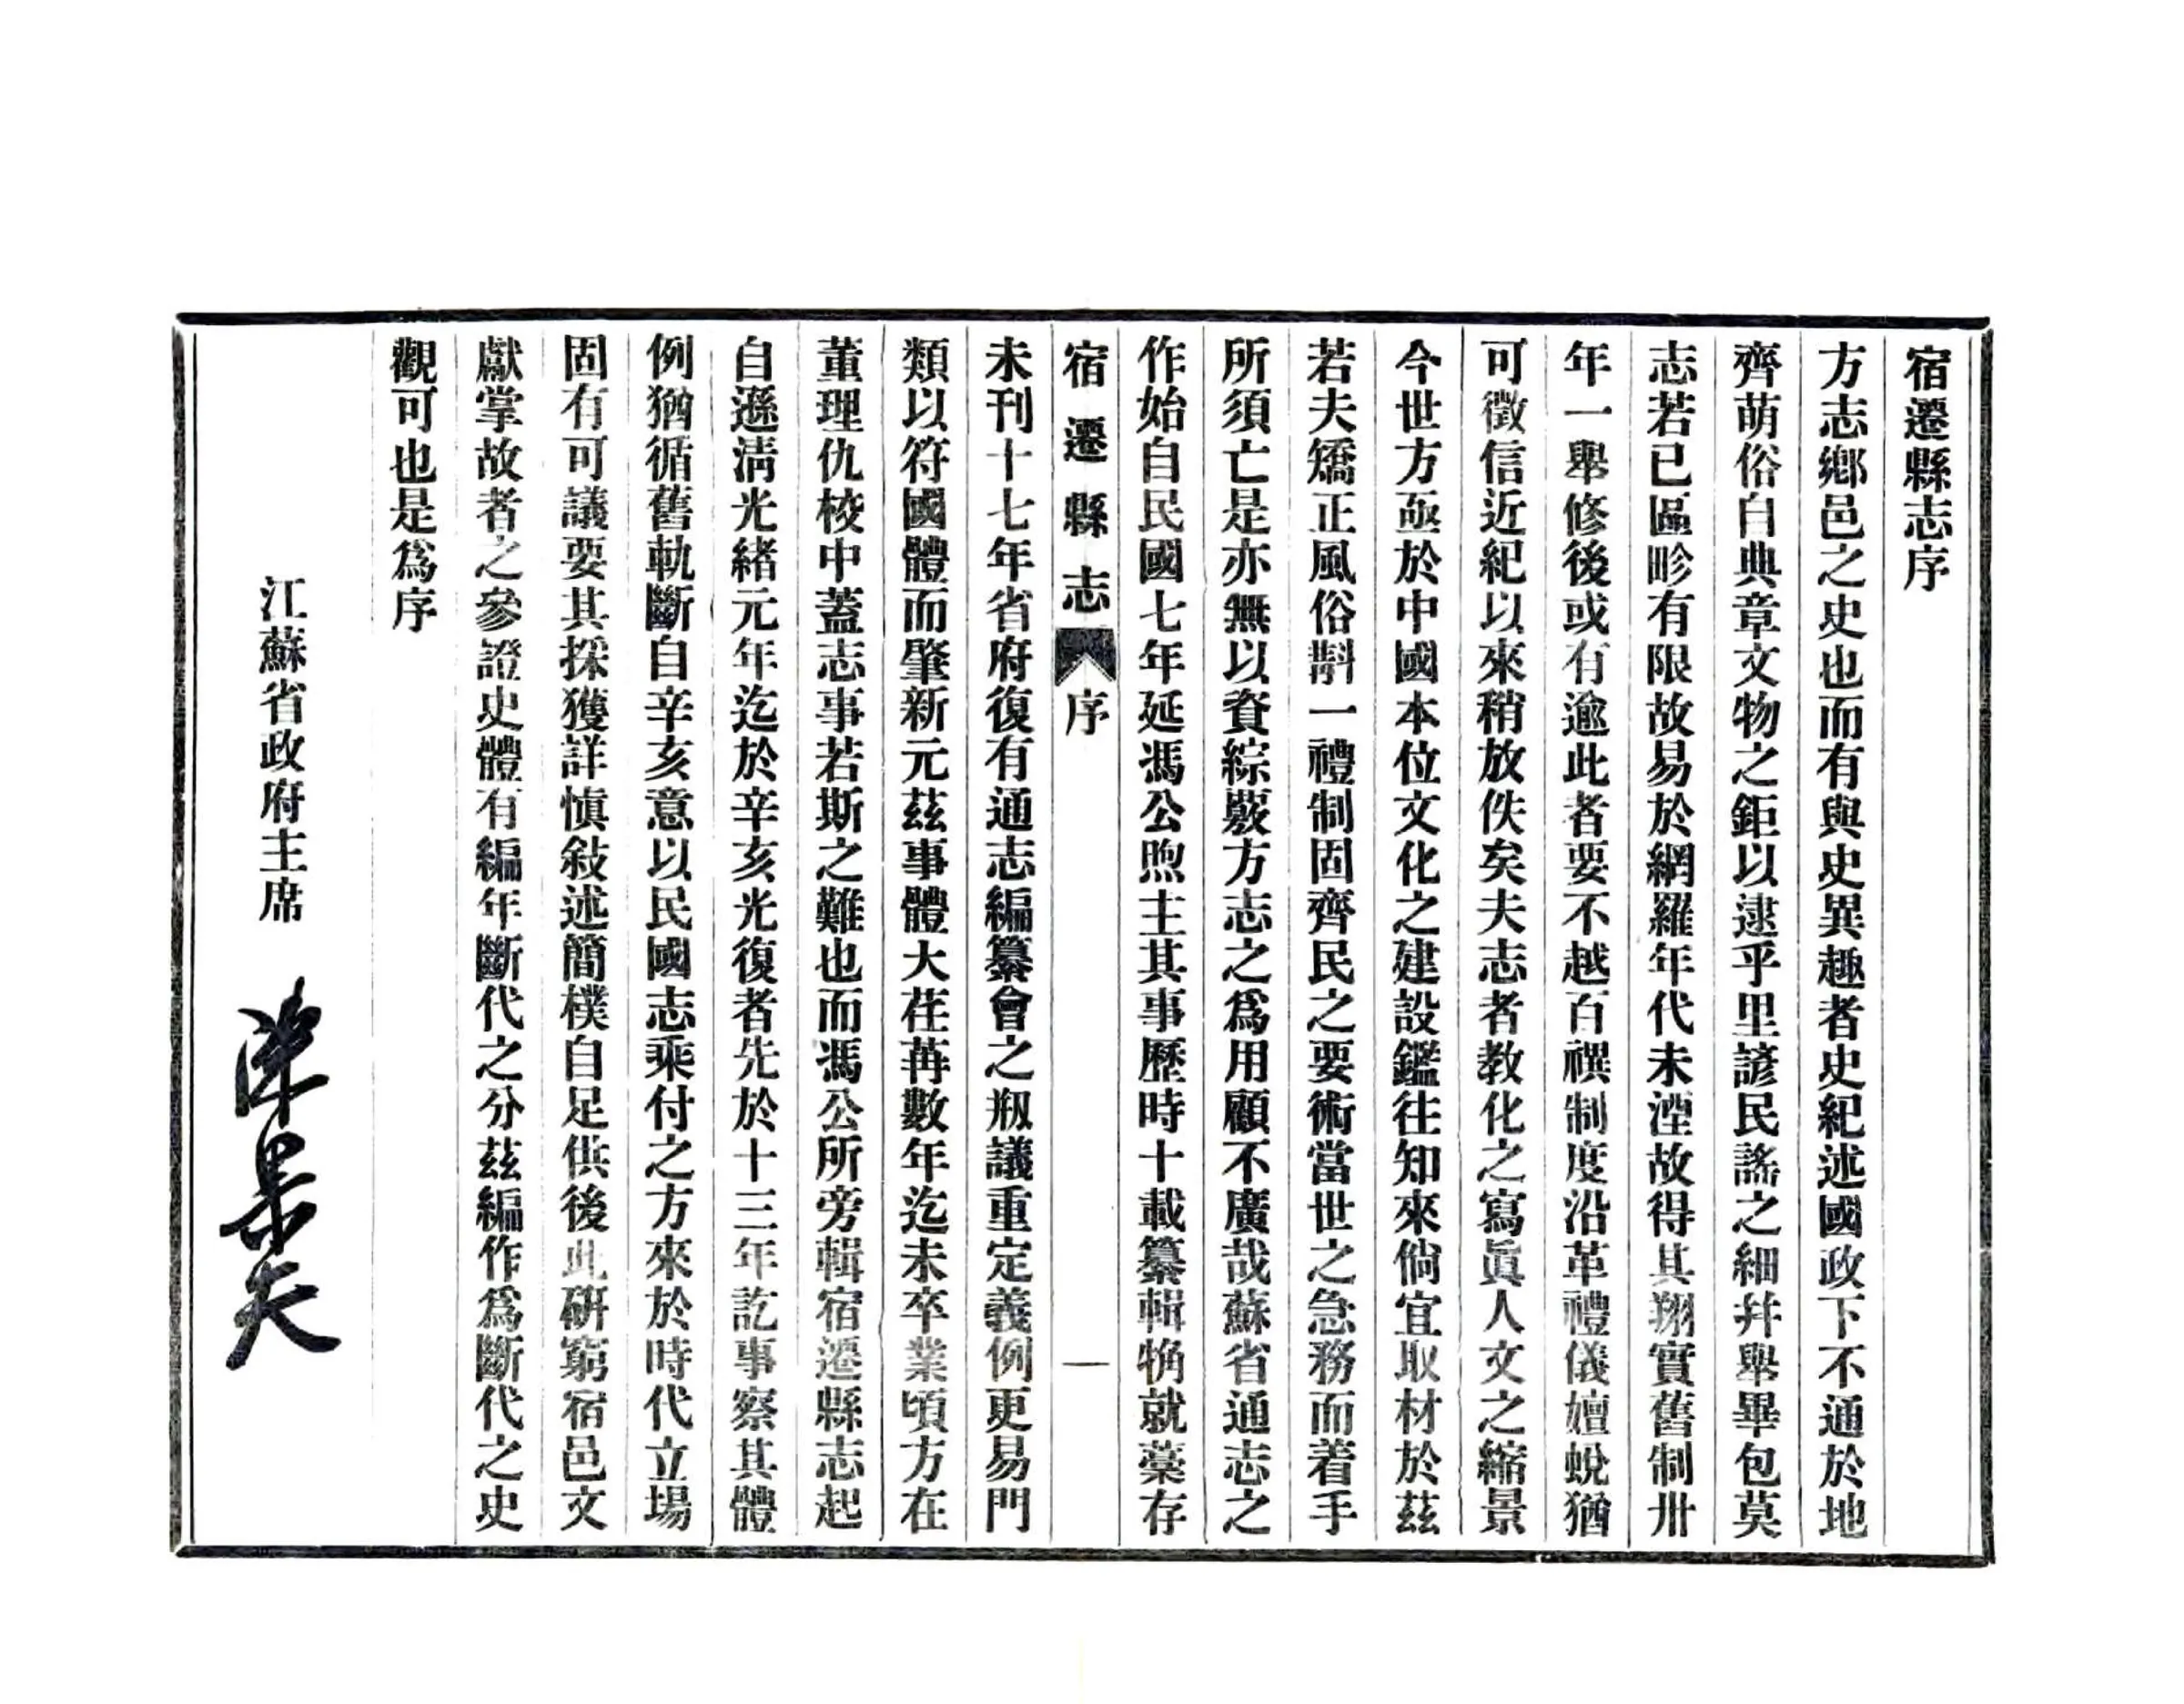 宿遷縣志序
方志鄉邑之史也而有與史異趣者史紀述國政下不通於地
齊萌俗自典章文物之鉅以逮乎里諺民謠之細幷舉畢包莫
志若已區畛有限故易於網羅年代未湮故得其翔實舊制卅
年一舉修後或有逾此者要不越百禩制度沿革禮儀嬗蛻猶
可徵信近紀以來稍放佚矣夫志者教化之寫眞人文之縮景
今世方亟於中國本位文化之建設鑑往知來倘宜取材於茲
若夫矯正風俗斠一禮制固齊民之要術當世之急務而着手
所須亡是亦無以資綜覈方志之爲用顧不廣哉蘇省通志之
作始自民國七年延馮公煦主其事歷時十載纂輯觕就藁存
宿遷縣志 序 一
未刊十七年省府復有通志編纂會之剏議重定義例更易門
類以符國體而肇新元茲事體大荏苒數年迄未卒業頃方在
董理仇校中蓋志事若斯之難也而馮公所旁輯宿遷縣志起
自遜清光緒元年迄於辛亥光復者先於十三年訖事察其體
例猶循舊軌斷自辛亥意以民國志乘付之方來於時代立場
固有可議要其採獲詳愼敍述簡樸自足供後此研窮宿邑文
獻掌故者之參證史體有編年斷代之分茲編作爲斷代之史
觀可也是爲序
江蘇省政府主席 陳果夫